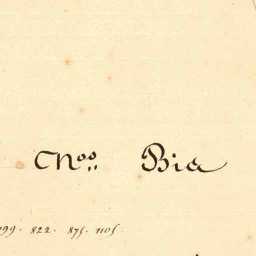 Cnoo Bia
799. 822. 875. 1105